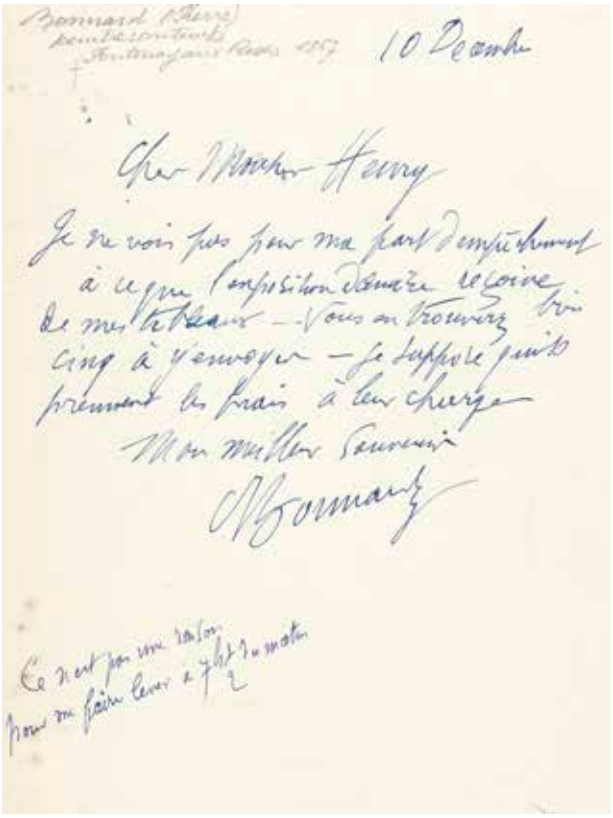 Bonnard (Pierre)
peintre
Fontenay aux Roses 1867
10 Decembre
Cher Monsieur Henry
Je ne vois pas pour ma part d'empêchement
à ce que l'exposition reçoive
de mes tableaux - Vous en trouverez bien
cinq à y envoyer - Je suppose qu'ils
prennent les frais à leur charge
Mon meilleur Souvenir
Bonnard
Ce n'est pas une raison
pour me faire lever à 7 h 1/2 du matin